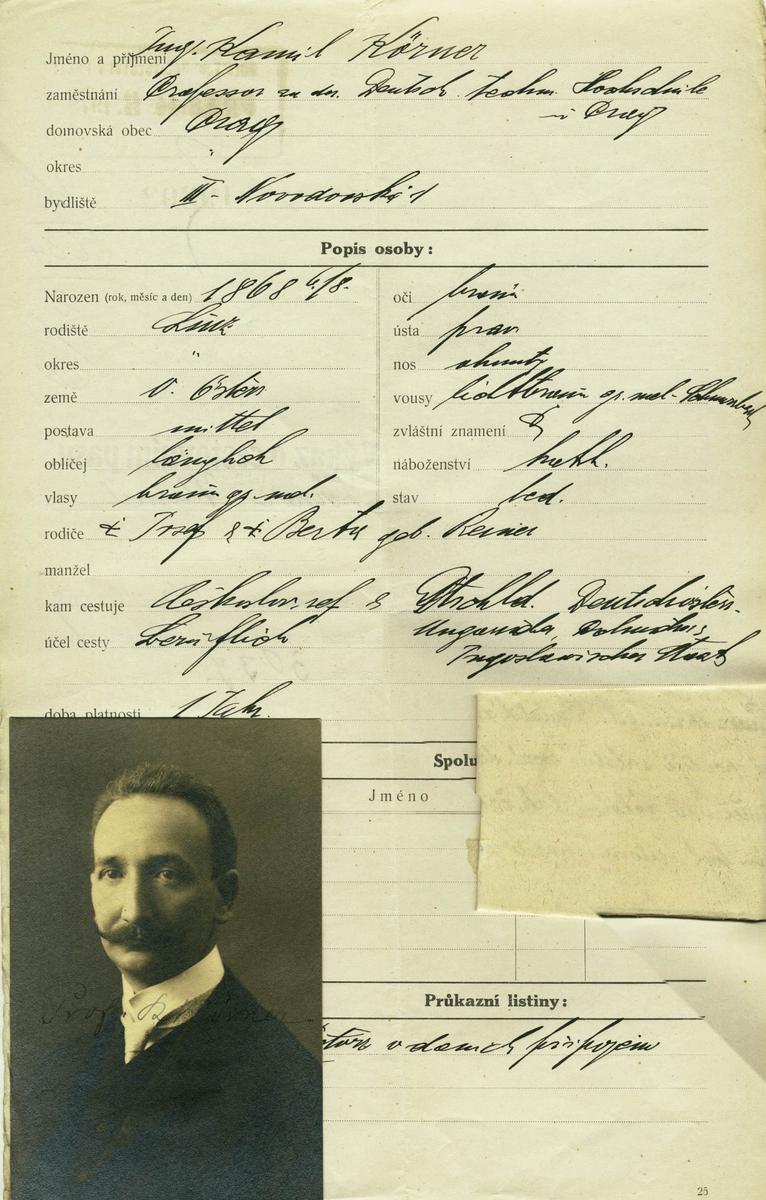 Jméno a příjmení Ing. Kamil Körner
zaměstnání Professor an der Deutsch. techn. Hochschule
in Prag
domovská obec Prag
okres "
bydliště III - 1
Popis osoby:
Narozen (rok, měsíc a den) 1868 6/8.
rodiště Linz
okres "
země O. Österr
postava mittel
obličej länglich
vlasy braun gr. mel.
oči braun
ústa prav
nos
vousy gr. mel. Schnurrbart
zvláštní znamení
náboženství kath.
stav led.
rodiče ‡ Josef & ‡ Berta geb. Reiner
manžel
kam cestuje Českoslov. rep & Dtschld. Deutschösterr.
Dalmatien,
Jugoslavischer Staat
účel cesty beruflich
doba platnosti 1 Jahr.
Spolu
Jméno
Průkazní listiny:
v domích připojeno
Prof. K. Körner
25